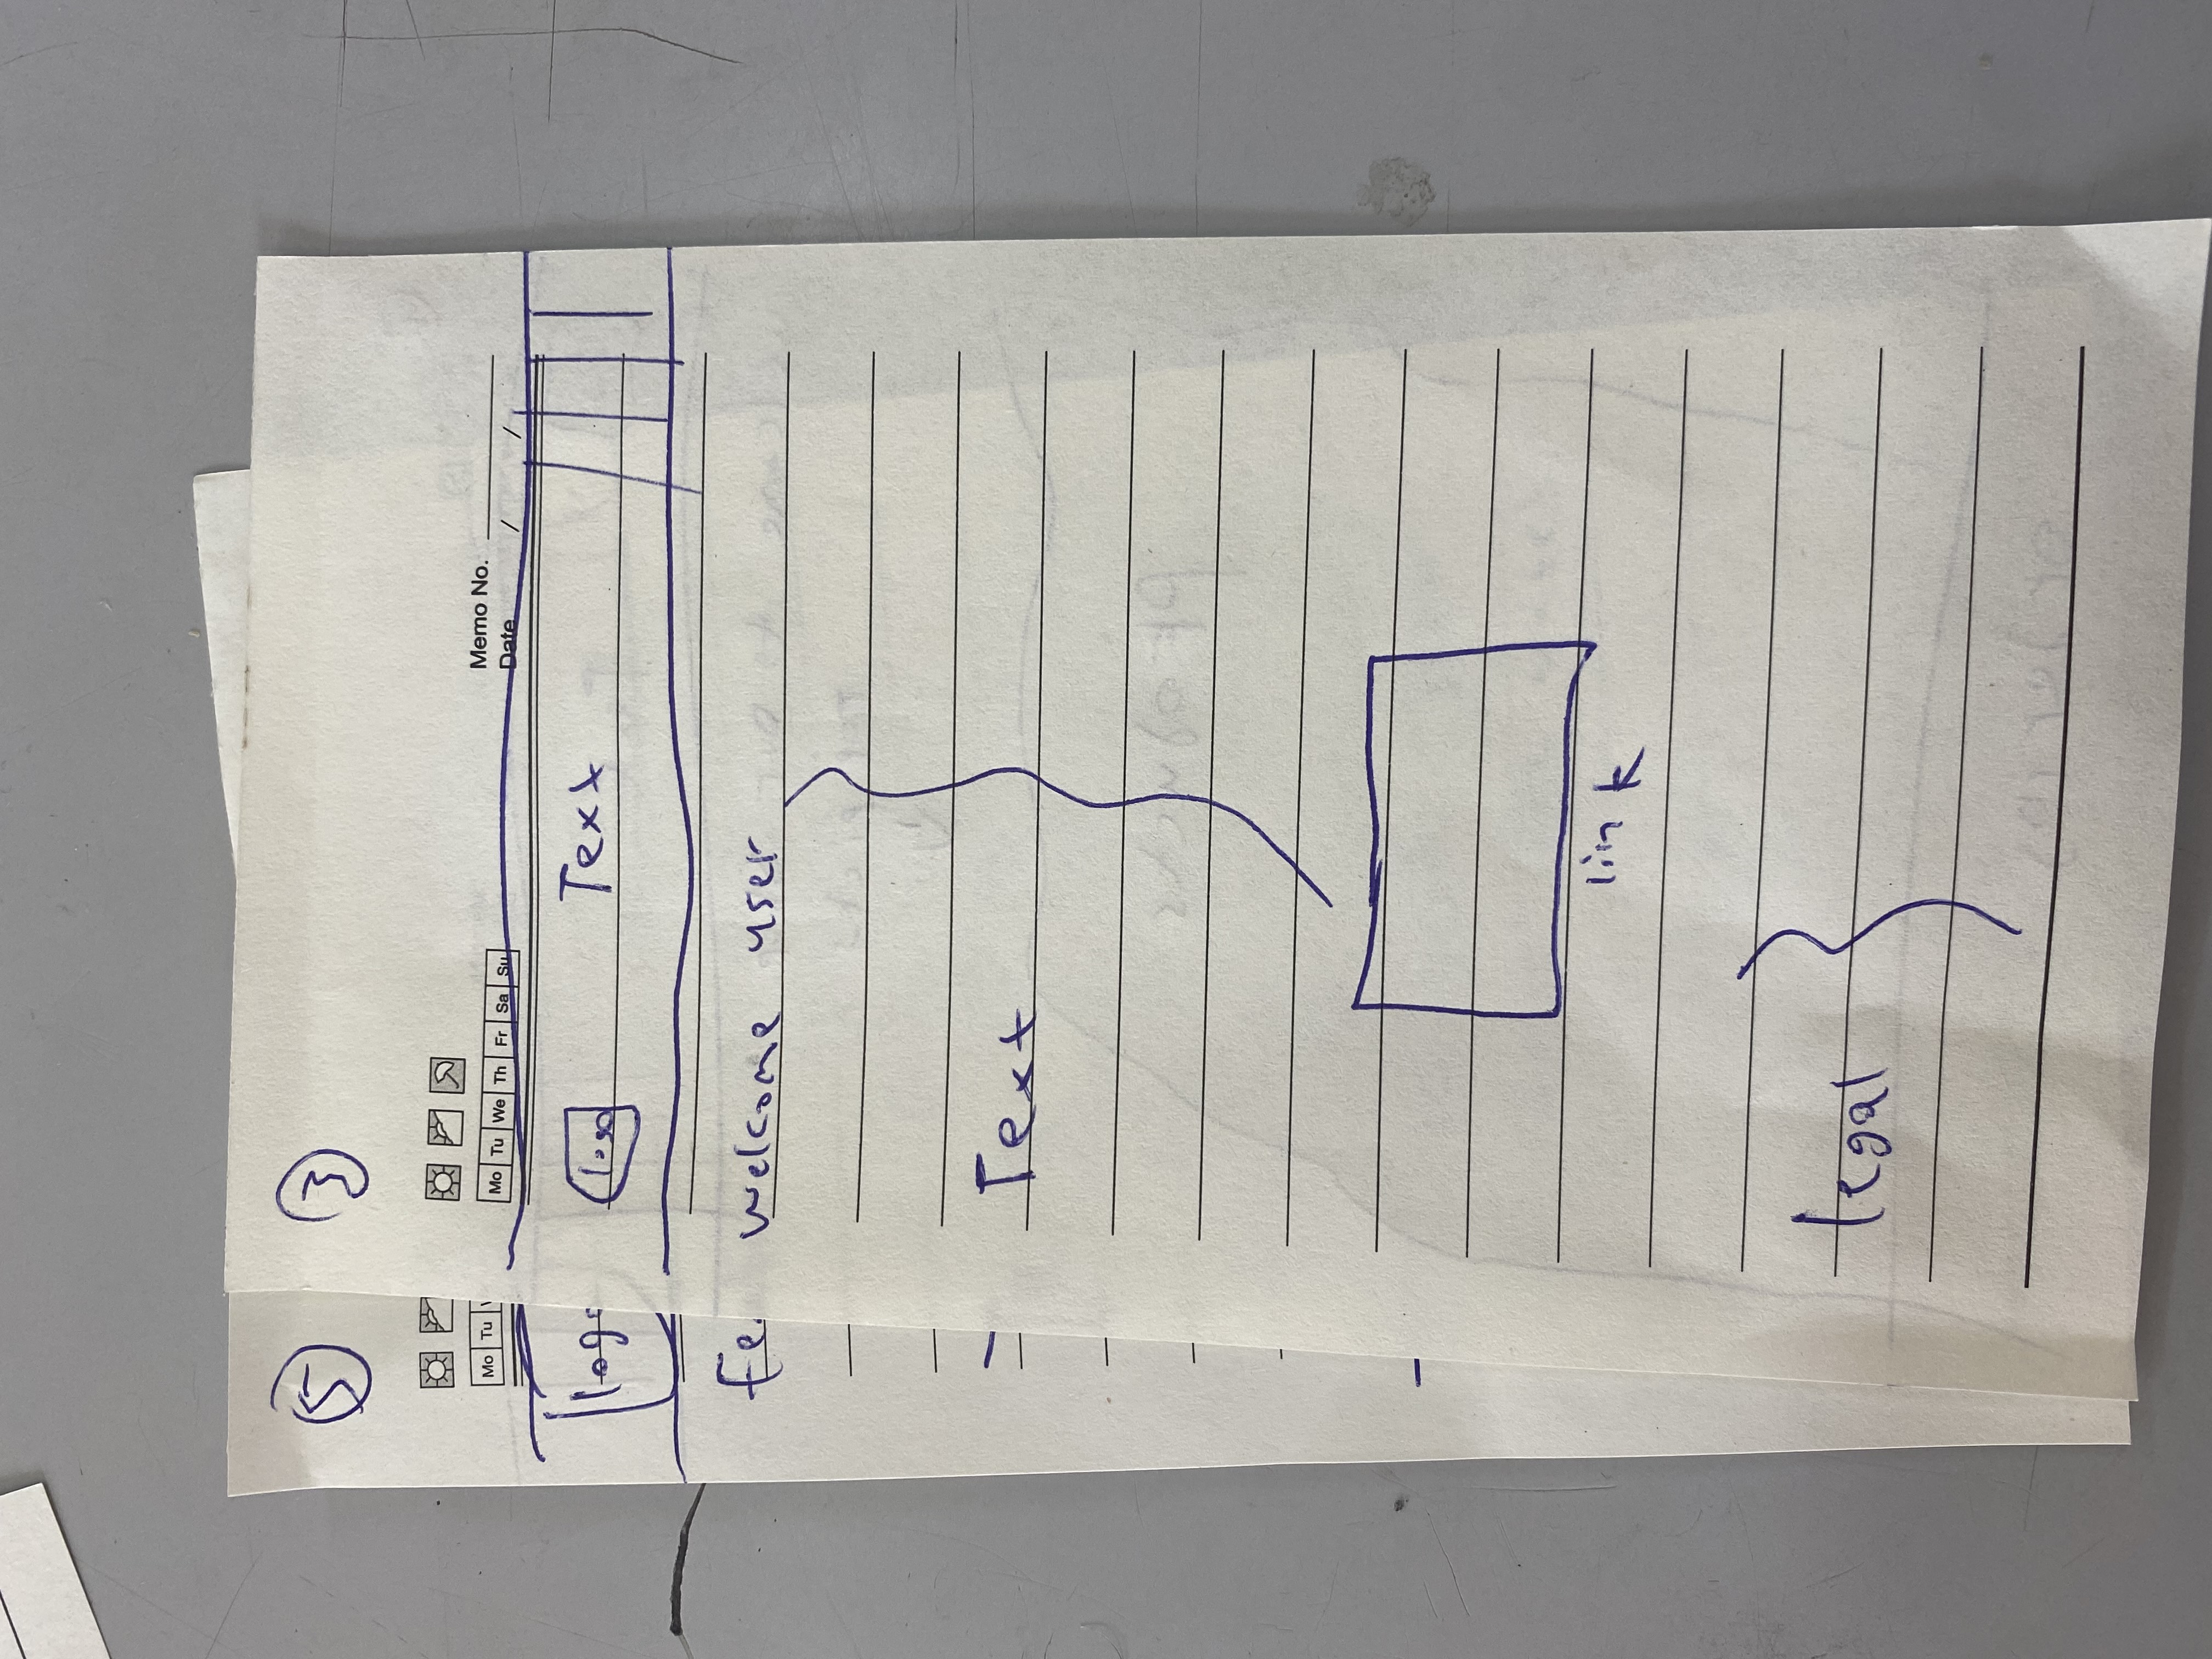 5
Mo Tu
logo
fe
3
Mo Tu We Th Fr Sa Su
Memo No.
Date / /
logo Text
welcome user
Text
link
legal